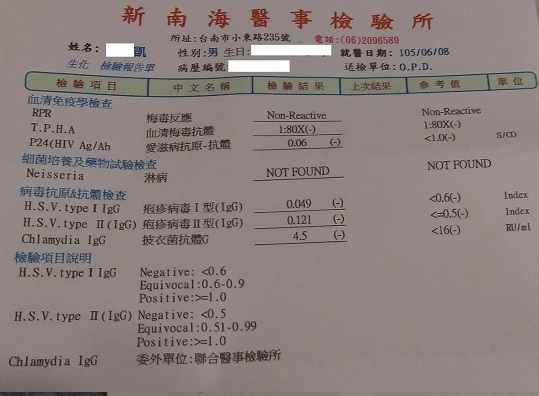 新南海醫事檢驗所
所址:台南市小東路235號 電話:(06)2096589
姓名: 凱 性別:男 生日: 就醫日期: 105/06/08
生化 檢驗報告單 病歷編號 送檢單位:O.P.D.
檢驗項目 中文名稱 檢驗結果 上次結果 參考值 單位
血清免疫學檢查
RPR 梅毒反應 Non-Reactive Non-Reactive
T.P.H.A 血清梅毒抗體 1:80X(-) 1:80X(-)
P24(HIV Ag/Ab 愛滋病抗原-抗體 0.06 (-) <1.0(-) S/CO
細菌培養及藥物試驗檢查
Neisseria 淋病 NOT FOUND NOT FOUND
病毒抗原&抗體檢查
H.S.V.type I IgG 疱疹病毒I型(IgG) 0.049 (-) <0.6(-) Index
H.S.V.type II(IgG) 疱疹病毒II型(IgG) 0.121 (-) <=0.5(-) Index
Chlamydia IgG 披衣菌抗體G 4.5 (-) <16(-) RU/ml
檢驗項目說明
H.S.V.type I IgG Negative: <0.6
Equivocal:0.6-0.9
Positive:>=1.0
H.S.V.type II(IgG) Negative: <0.5
Equivocal:0.51-0.99
Positive:>=1.0
Chlamydia IgG 委外單位:聯合醫事檢驗所